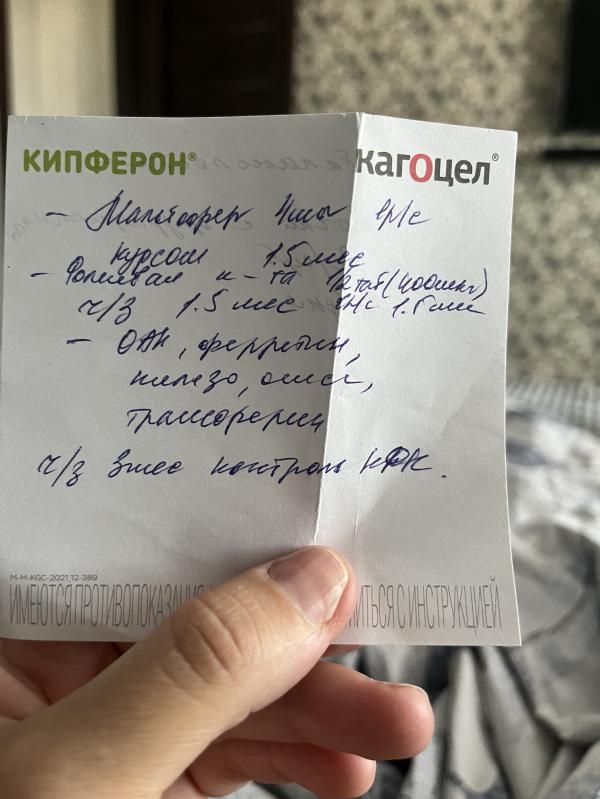 КИПФЕРОН®
кагоцел®
- Мальтофер 4мл 1р/с
курсом 1.5 мес
- Фолиевая к-та 1/2 таб (400мкг)
ч/з 1.5 мес 1.5 мес
- ОАК, ферретин,
железо, ожсс,
трансферрин
ч/з 3 мес контроль
M-M-KGC-2021_12-389
ИМЕЮТСЯ ПРОТИВОПОКАЗАНИЯ ИТЬСЯ С ИНСТРУКЦИЕЙ